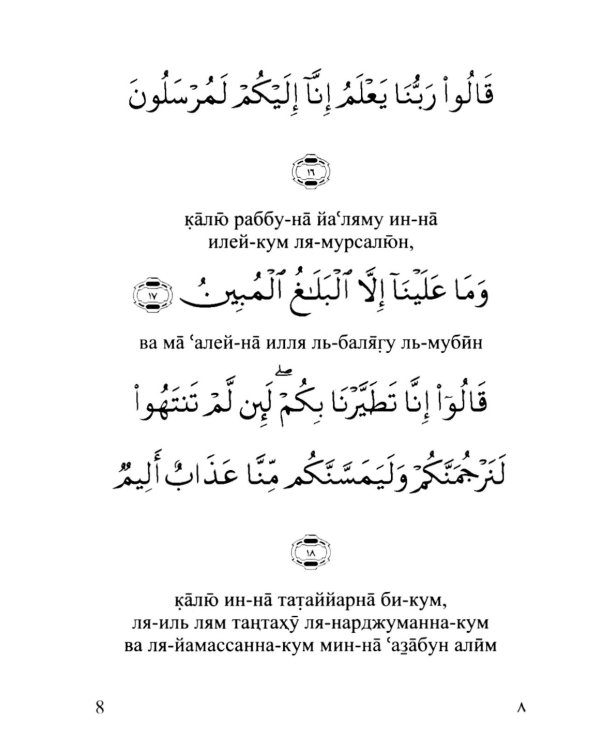 قَالُوا۟ رَبُّنَا يَعْلَمُ إِنَّآ إِلَيْكُمْ لَمُرْسَلُونَ
١٦
к̣а̄лю̄ раббу-на̄ йаʿляму ин-на̄
илей-кум ля-мурсалю̄н,
وَمَا عَلَيْنَآ إِلَّا ٱلْبَلَـٰغُ ٱلْمُبِينُ ١٧
ва ма̄ ʿалей-на̄ илля ль-баля̄г̣у ль-мубӣн
قَالُوٓا۟ إِنَّا تَطَيَّرْنَا بِكُمْ ۖ لَئِن لَّمْ تَنتَهُوا۟
لَنَرْجُمَنَّكُمْ وَلَيَمَسَّنَّكُم مِّنَّا عَذَابٌ أَلِيمٌ
١٨
к̣а̄лю̄ ин-на̄ тат̣аййарна̄ би-кум,
ля-иль лям таңтахӯ ля-нарджуманна-кум
ва ля-йамассанна-кум мин-на̄ ʿаз̱а̄бун алӣм
8 ٨